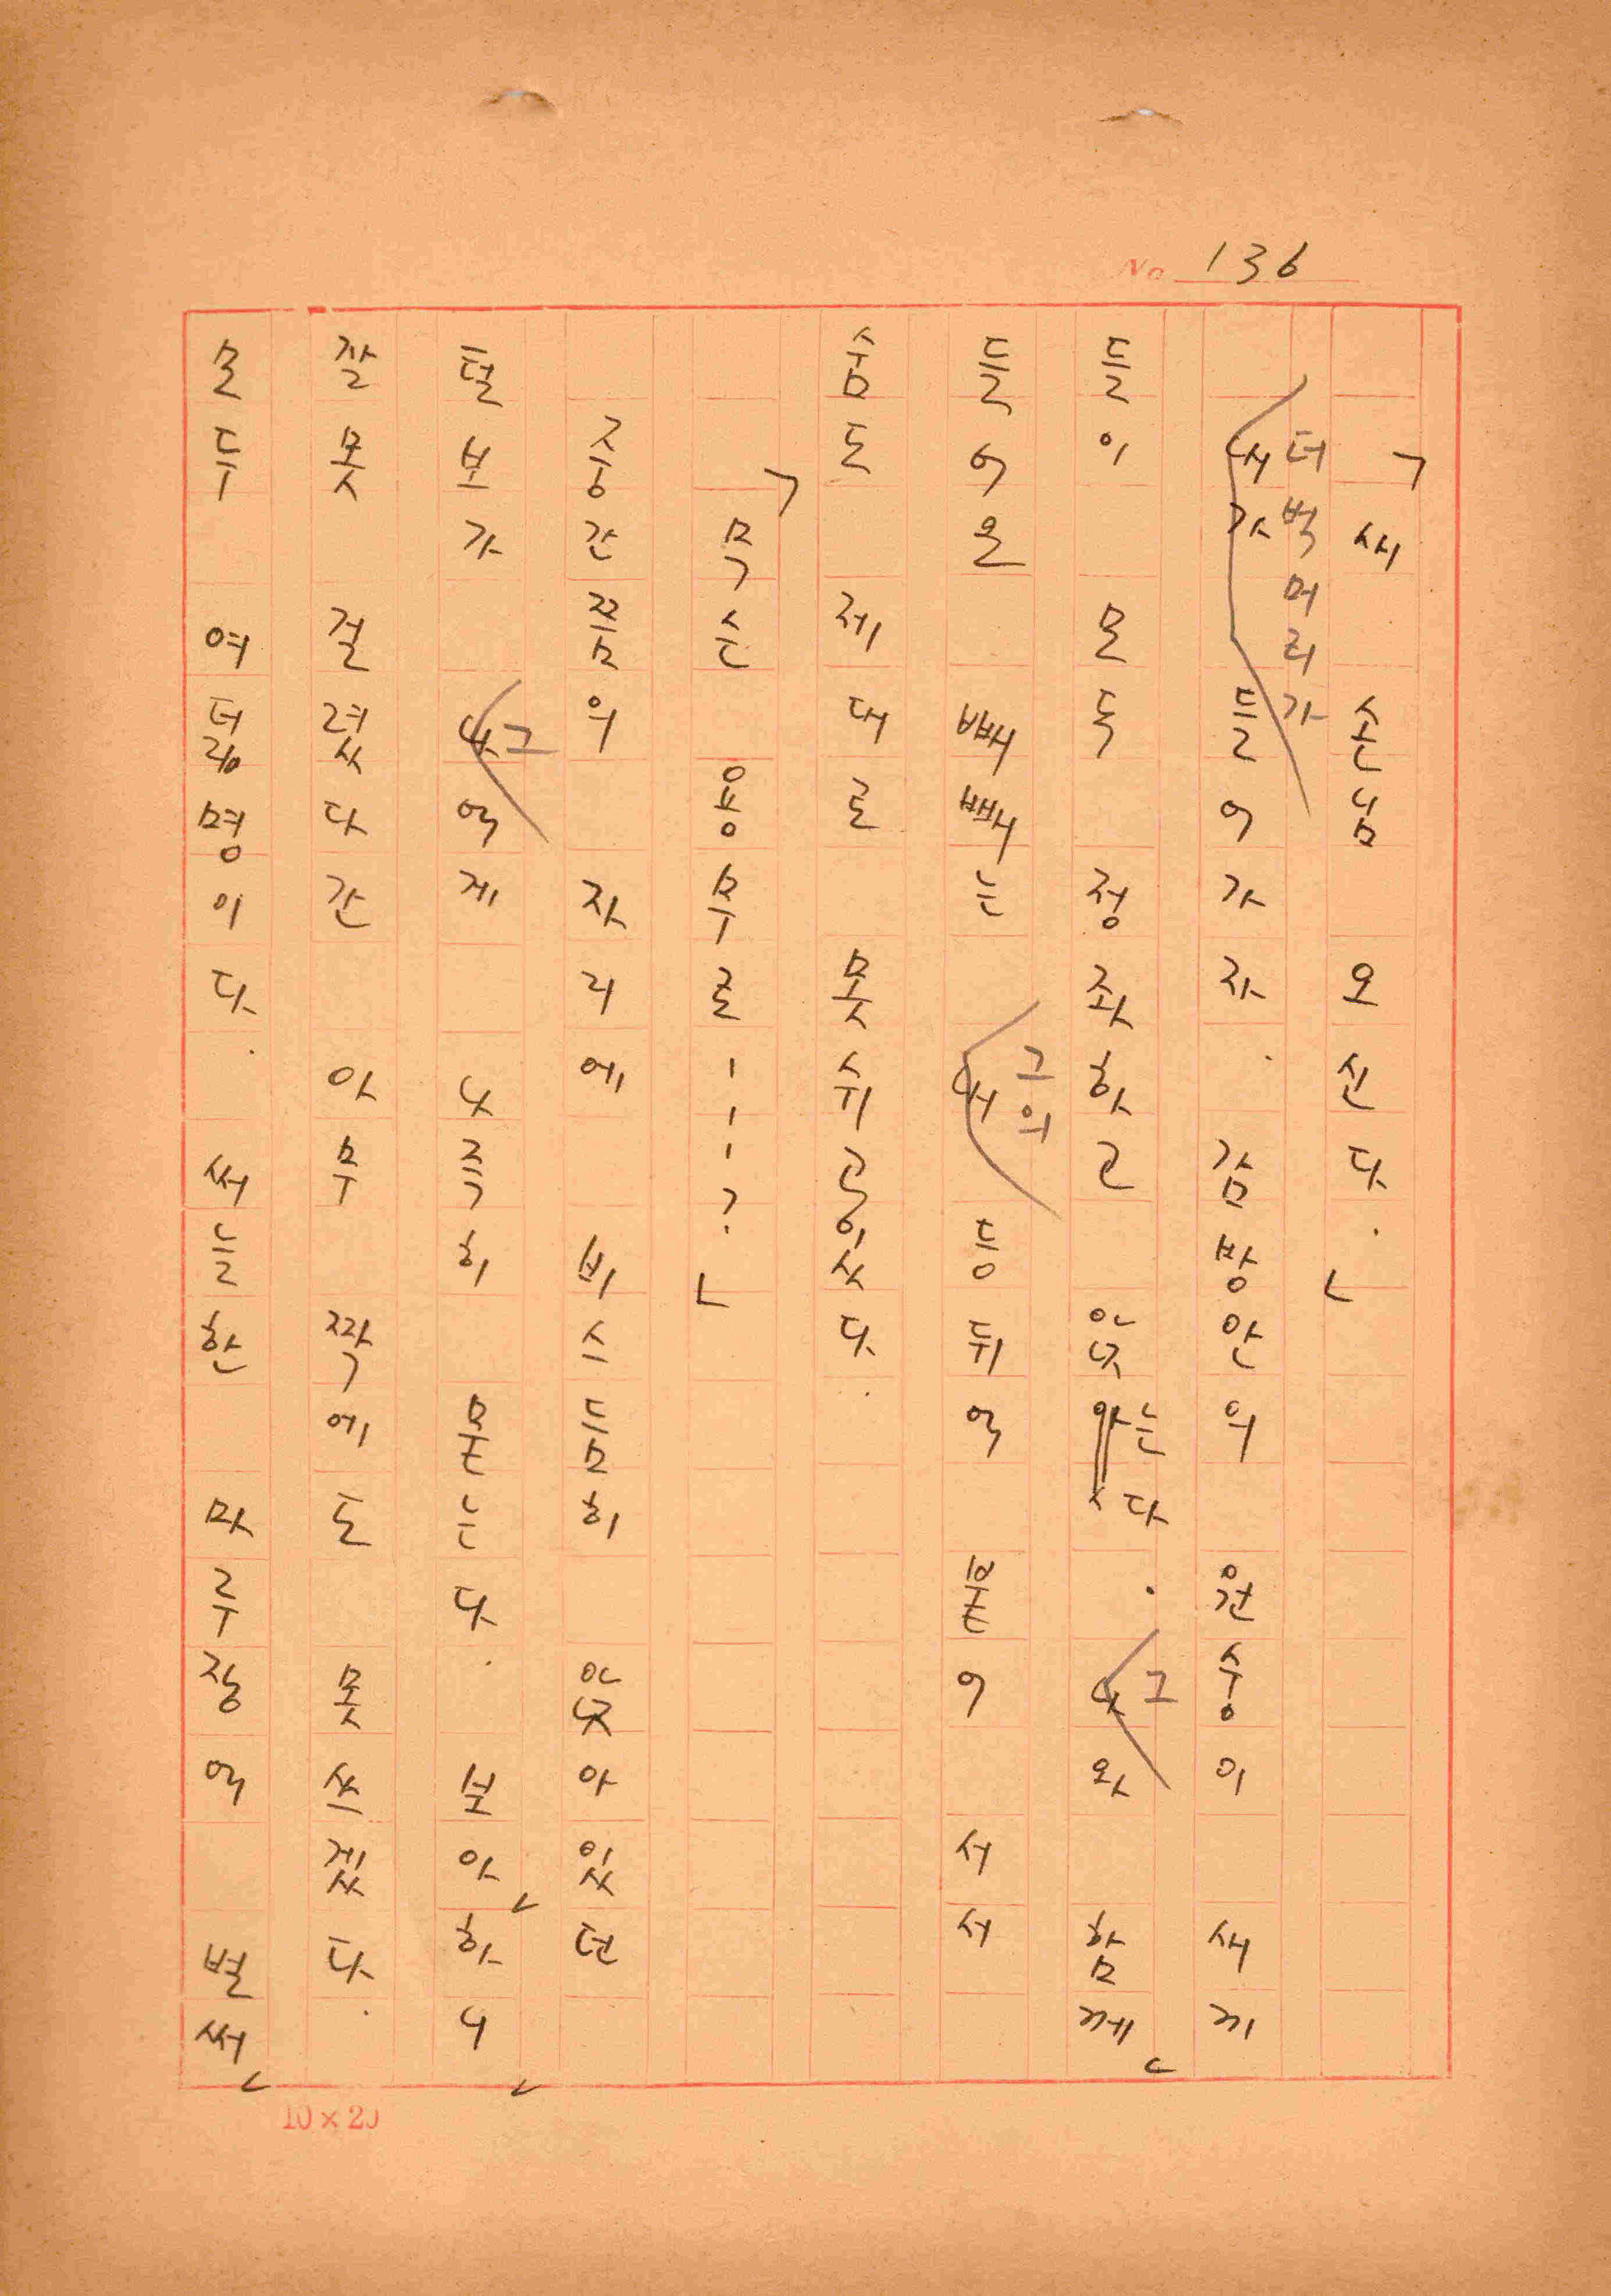 No 136
「새 손님 오신다.」
더벅머리가
내가 들어가자. 감방안의 원숭이 새끼
는다 그
들이 모두 정좌하고 앉 . 나와 함께
그의
들어온 빼빼는 내 등뒤에 붙어 서서
숨도 제대로 못 쉬고 있다.
「무슨 용무로---?」
중간쯤의 자리에 비스듬히 앉아 있던
그
털보가 나에게 나즉히 묻는다. 보아하니
잘못 걸렸다간 아무 짝에도 못 쓰겠다.
모두 여덟명이다. 써늘한 마루장에 벌써
10×20